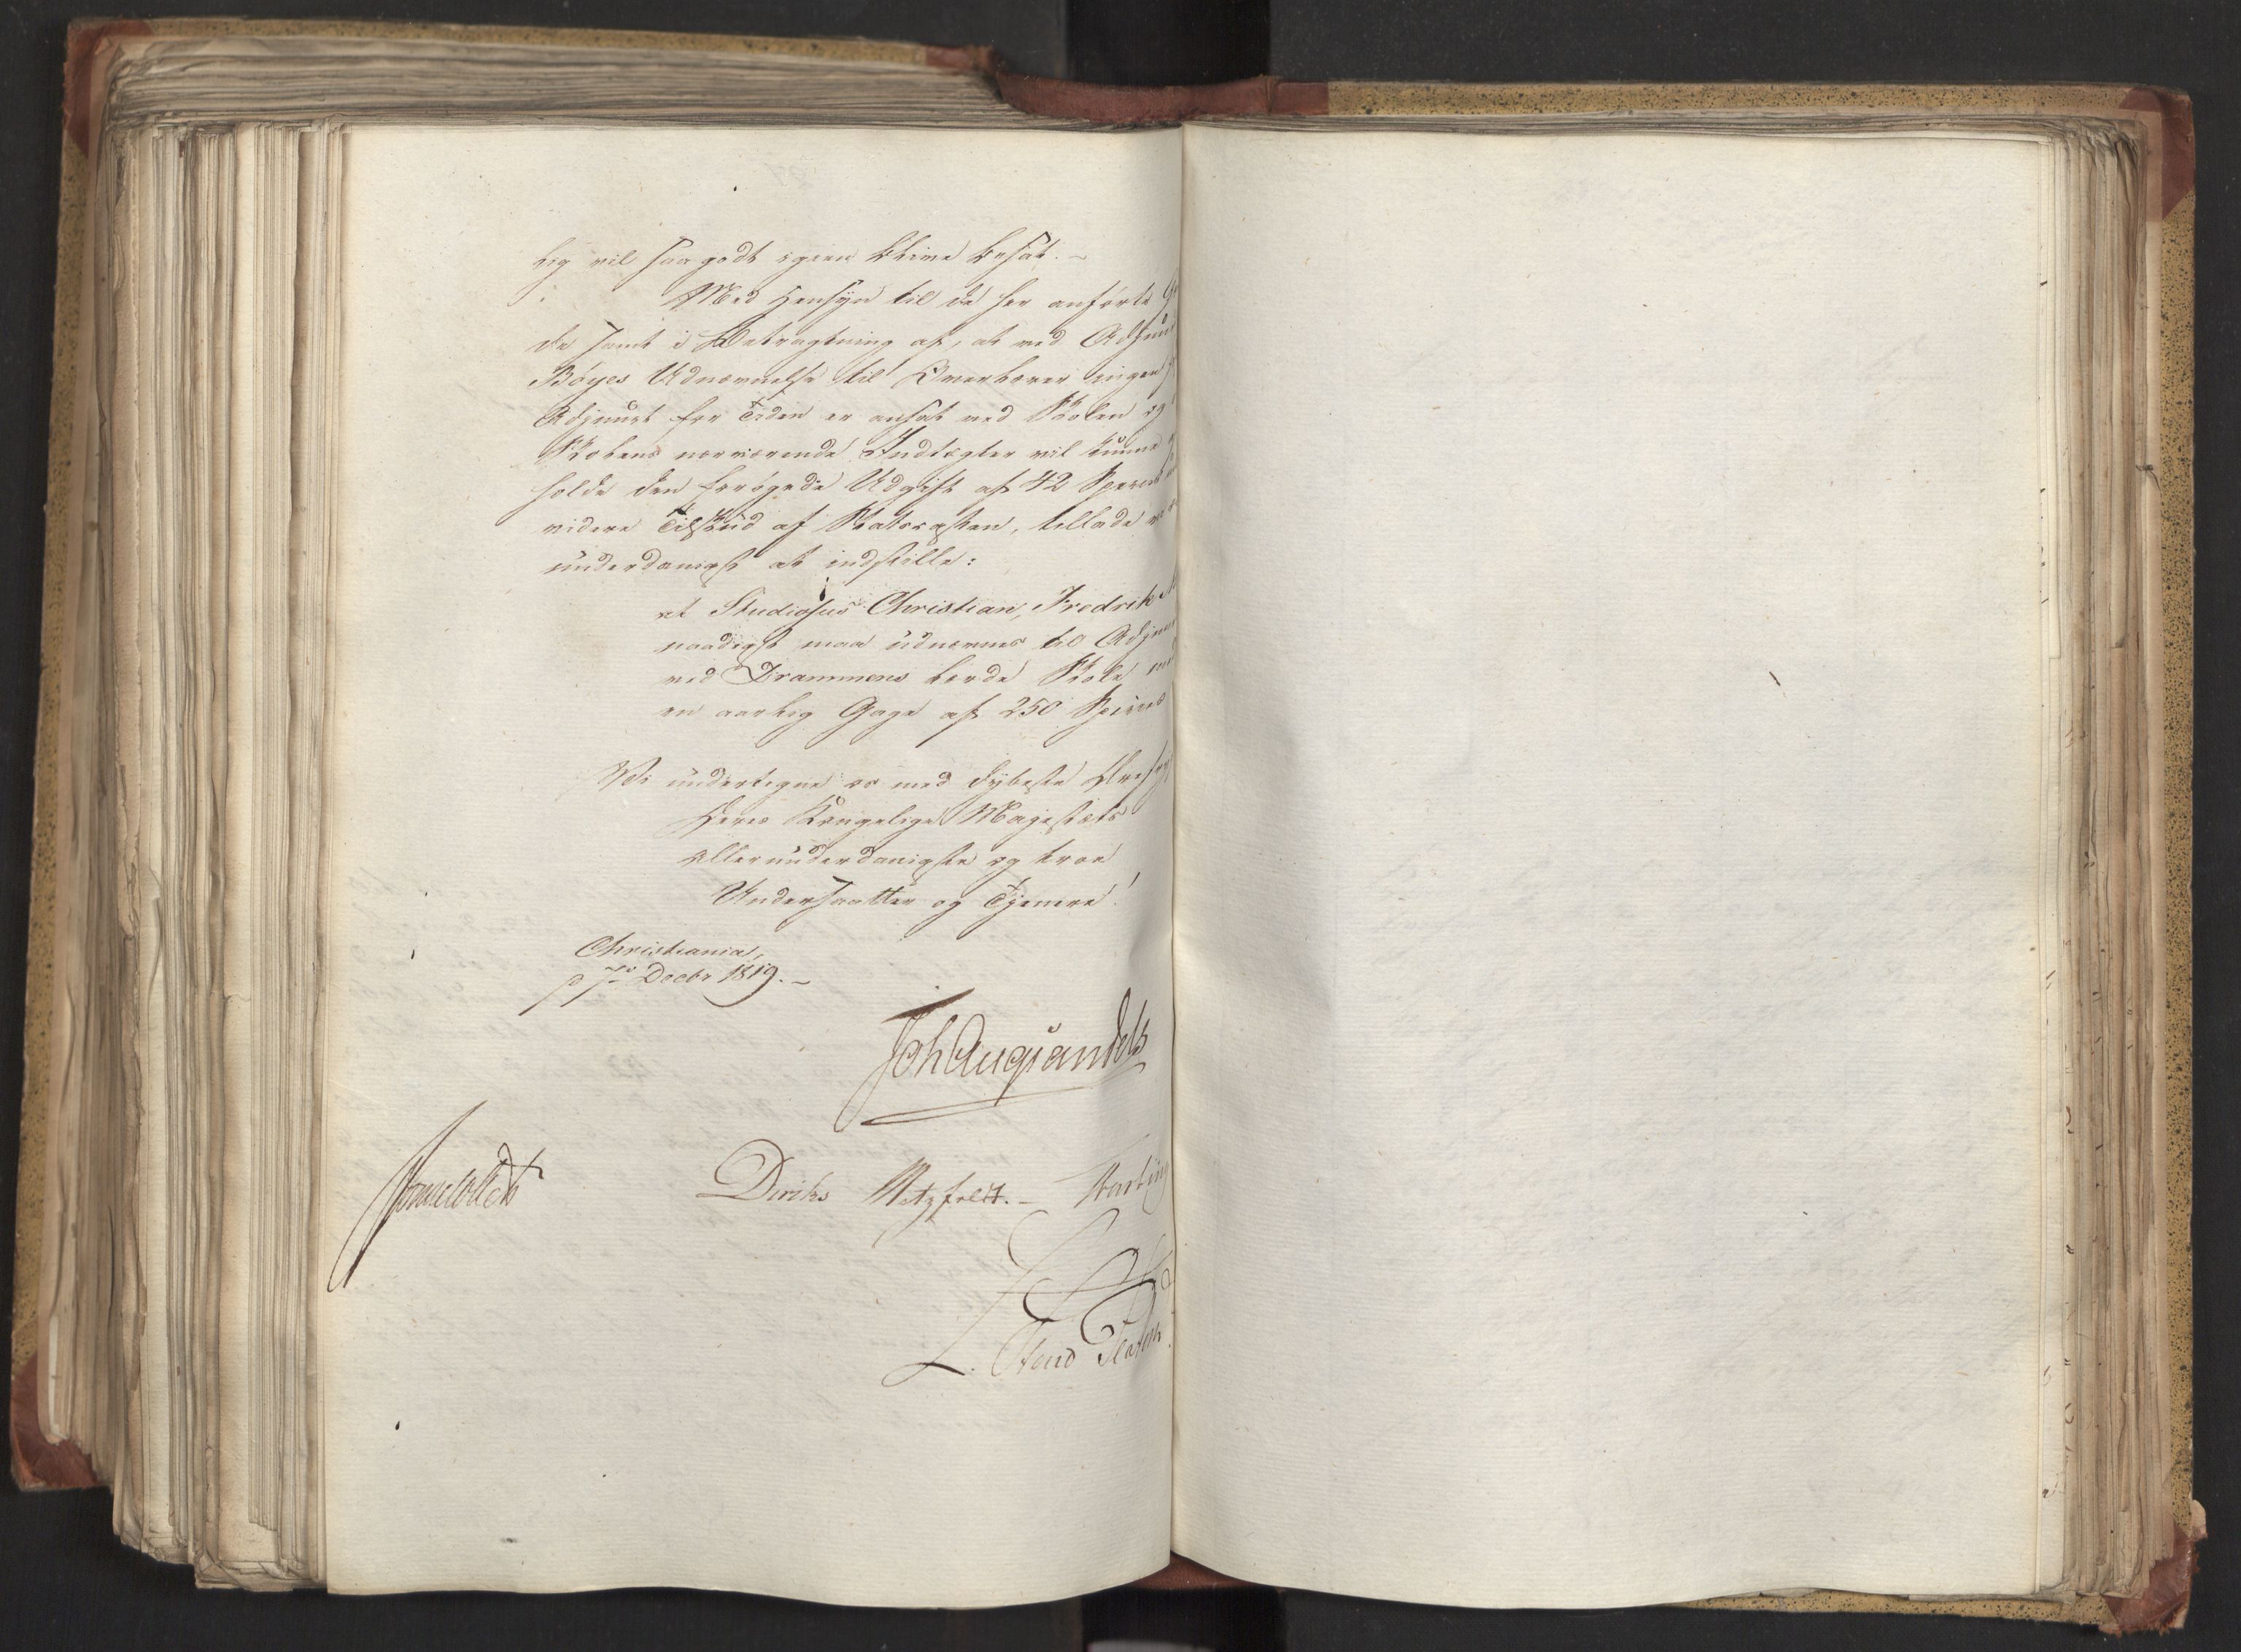 lig vil saa godt igien blive besat. –
Med Hensyn til de her anførte
de samt i Betragtning af, at ved Adjunct
Böyes Udnævnelse til Overlærer ingen
Adjunct for Tiden er ansat ved Skolen og
Skolens nærværende Indtægter vil kunne
holde den forøgede Udgift af 42 Specied
videre Tilskud af Statscassen, tillade vi os
underdanigst at indstille:
at Studiosus Christian Fredrik
naadigst maa udnævnes til Adjunct
ved Drammens lærde Skole med
en aarlig Gage af 250 Species
Vi undertegne os med dybeste Ærefrygt
Deres Kongelige Majestæts
allerunderdanigste og troe
Undersaatter og Tjenere!
Christiania,
d 7de Decbr 1819. –
Joh Aug Sandels
Jonas Collett Diriks Motzfeldt. –
L. Stoud Platou